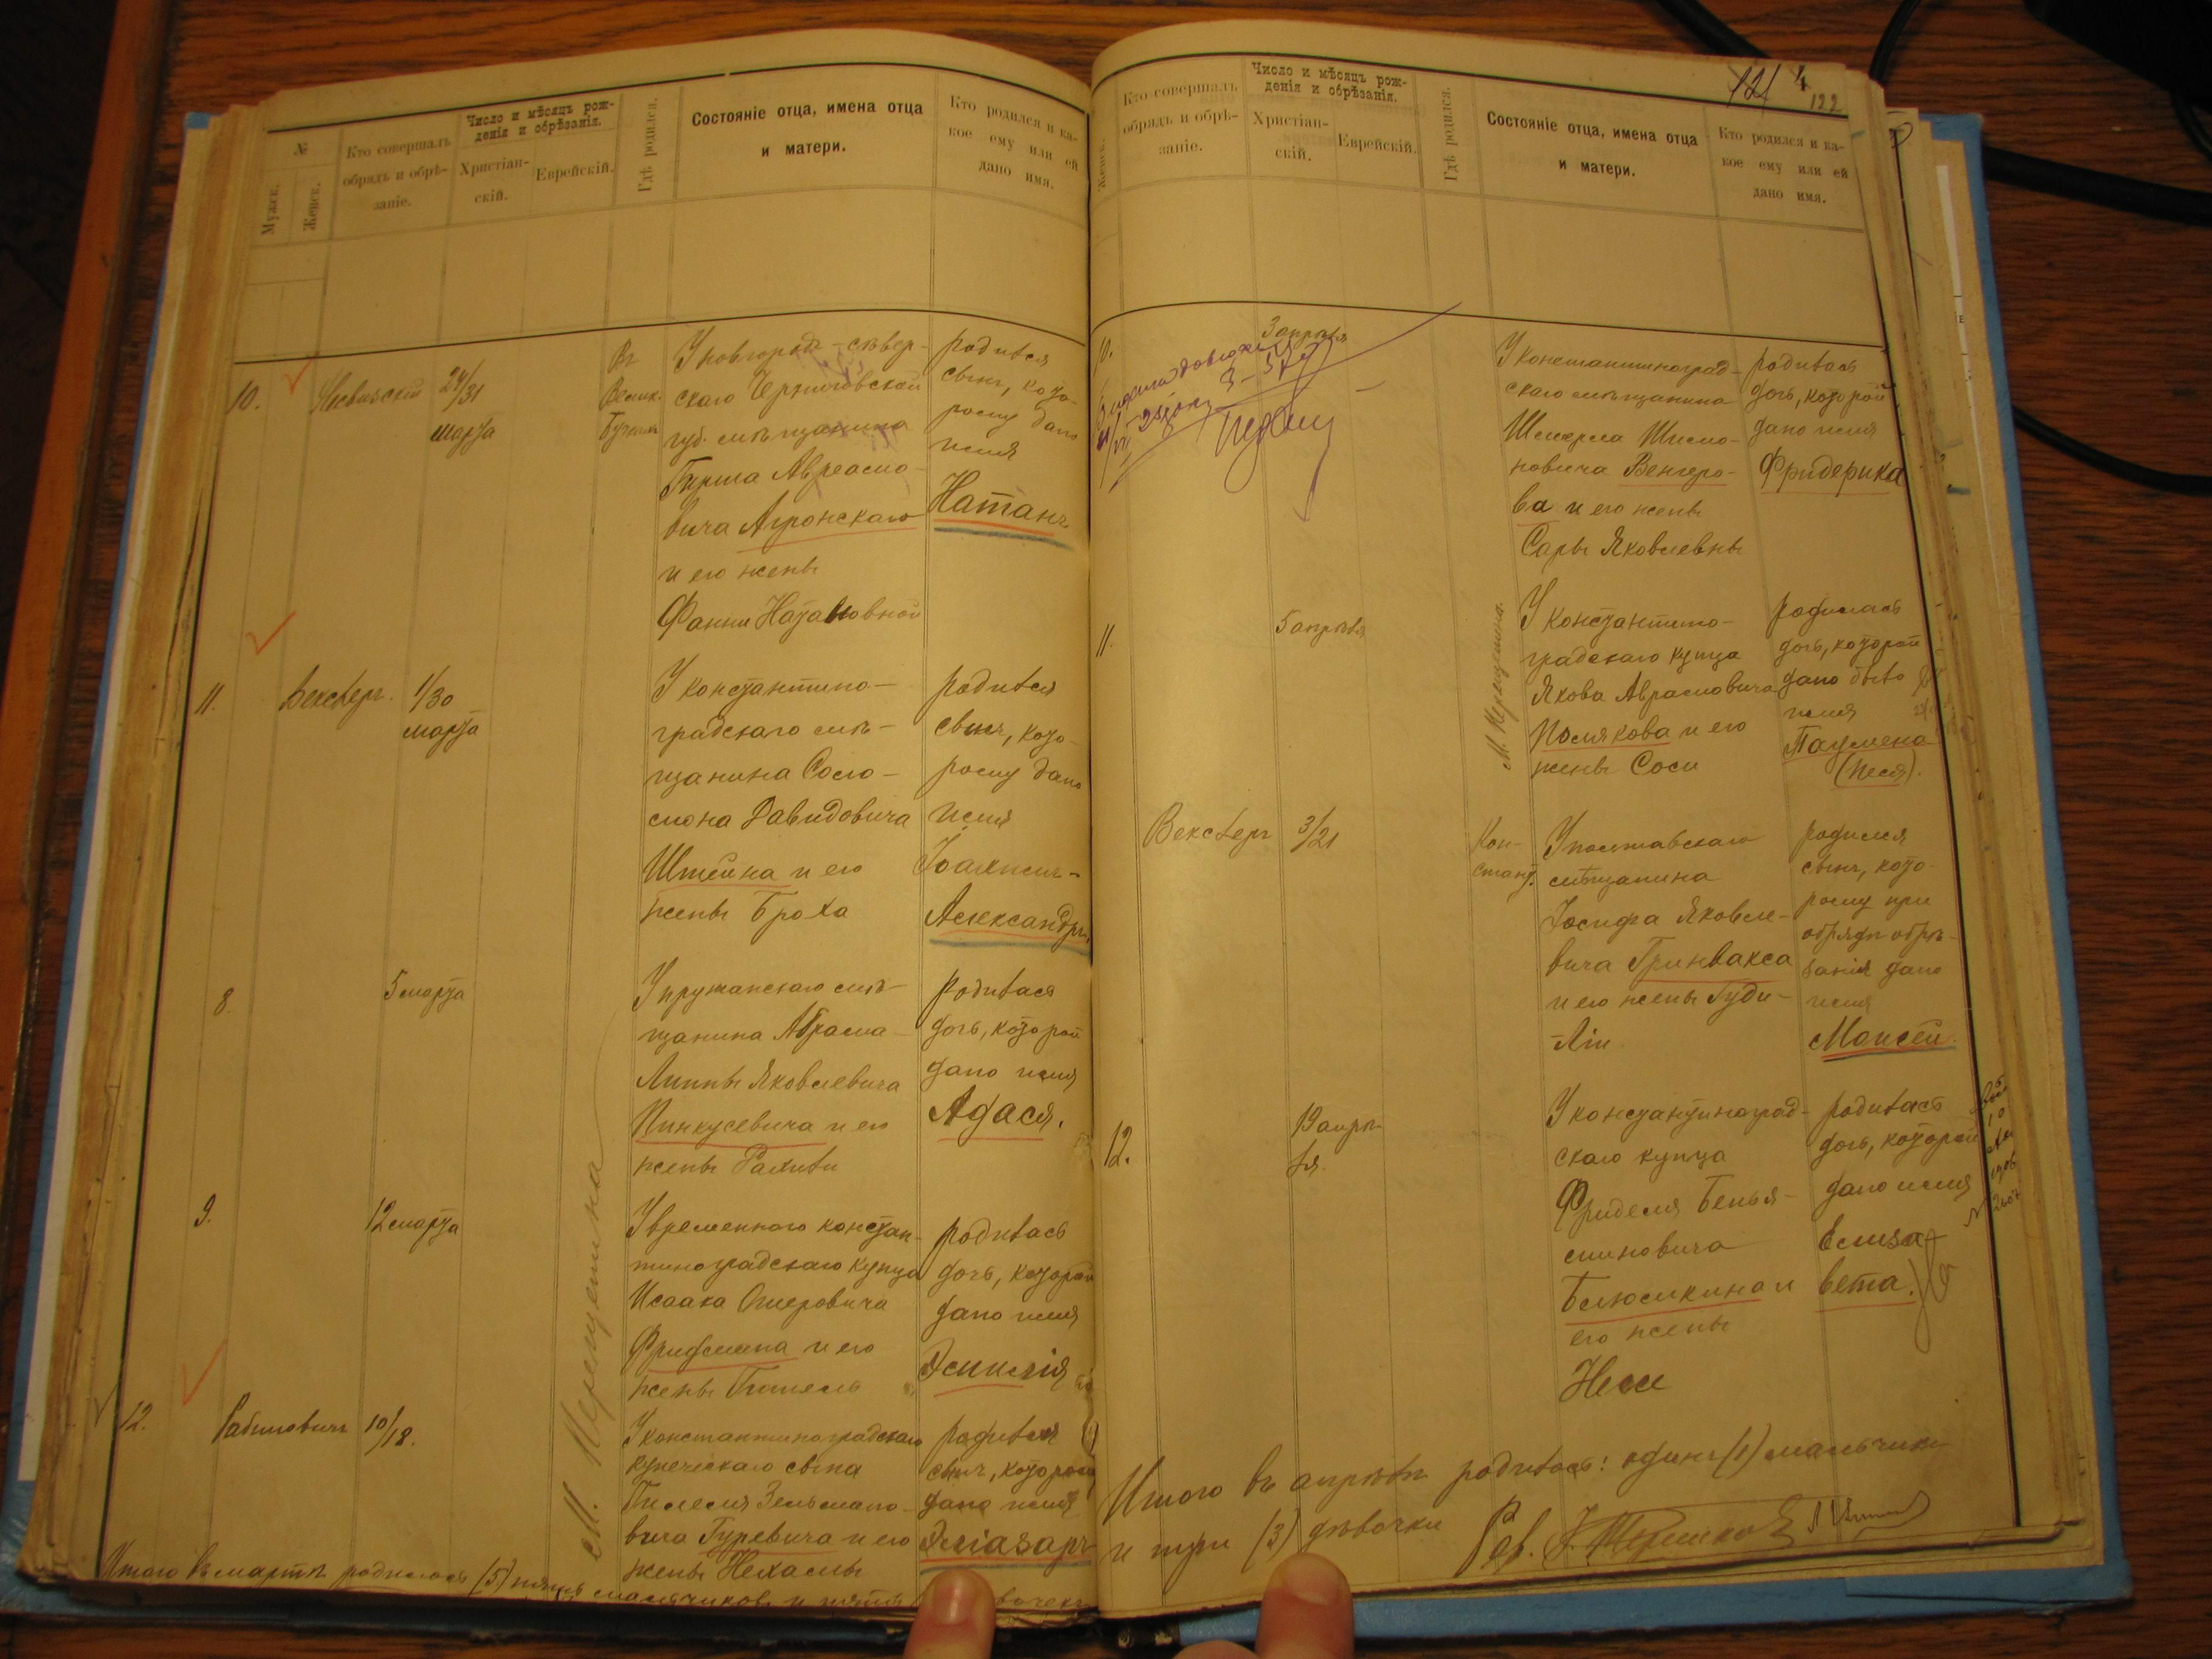 №
Мужск.
Женск.
Кто совершалъ
обрядъ и обрѣ-
заніе.
Число и мѣсяцъ рож-
денія и обрѣзанія.
Христіан-
скій.
Еврейскій.
Гдѣ родился.
Состояніе отца, имена отца
и матери.
Кто родился и ка-
кое ему или ей
дано имя.
10.
24/31
марта
У новгород-сѣвер-
скаго Черниговской
губ. мѣщанина
Гирша Авраамо-
вича Агронскаго
и его жены
Фанни Натановной
родился
сынъ, кото-
рому дано
имя
Натанъ
11.
Векслеръ.
1/30
марта
У константино-
градскаго мѣ-
щанина Соло-
мона Давидовича
Штейна и его
жены Броха
родился
сынъ, кото-
рому дано
имя
Іоахимъ-
Александръ
8.
5 марта
У пружанскаго мѣ-
щанина Абрама
Липпы Яковлевича
Пинкусевича и его
жены Рахили
родилась
дочь, которой
дано имя
Адася.
9.
12 марта
У временнаго констан-
тиноградскаго купца
Исаака Ошеровича
Фридмана и его
жены
родилась
дочь, которой
дано имя
Эмилія
12.
Рабиновичъ
10/18.
У константиноградскаго
купеческаго сына
Зельмано-
вича Гуревича и его
жены Нехамы
родился
сынъ, которому
дано имя
Эліазаръ
Итого въ мартѣ родилось (5) пять мальчиковъ и
121
4
122
Женск.
Кто совершалъ
обрядъ и обрѣ-
заніе.
Число и мѣсяцъ рож-
денія и обрѣзанія.
Христіан-
скій.
Еврейскій.
Гдѣ родился.
Состояніе отца, имена отца
и матери.
Кто родился и ка-
кое ему или ей
дано имя.
10.
3 апрѣля
У константиноград-
скаго мѣщанина
Шмерла Шимо-
новича Венгеро-
ва и его жены
Сары Яковлевны
родилась
дочь, которой
дано имя
Фридерика
11.
5 апрѣля
У константино-
градскаго купца
Якова Аврамовича
Полякова и его
жены Соси
родилась
дочь, которой
дано было
имя
(Песя).
Векслеръ
3/21
Кон-
стант.
У полтавскаго
мѣщанина
Іосифа Яковле-
вича Гринвакса
и его жены Гуди-
родился
сынъ, кото-
рому при
обрядѣ обрѣ-
занія дано
имя
Моисей.
12.
19 апрѣ-
ля.
У константиноград-
скаго купца
Фриделя Бенья-
миновича
Блюмкина и
его жены
родилась
дочь, которой
дано имя
Елиза-
вета.
Итого въ апрѣлѣ родилось: одинъ (1) мальчикъ
и три (3) дѣвочки